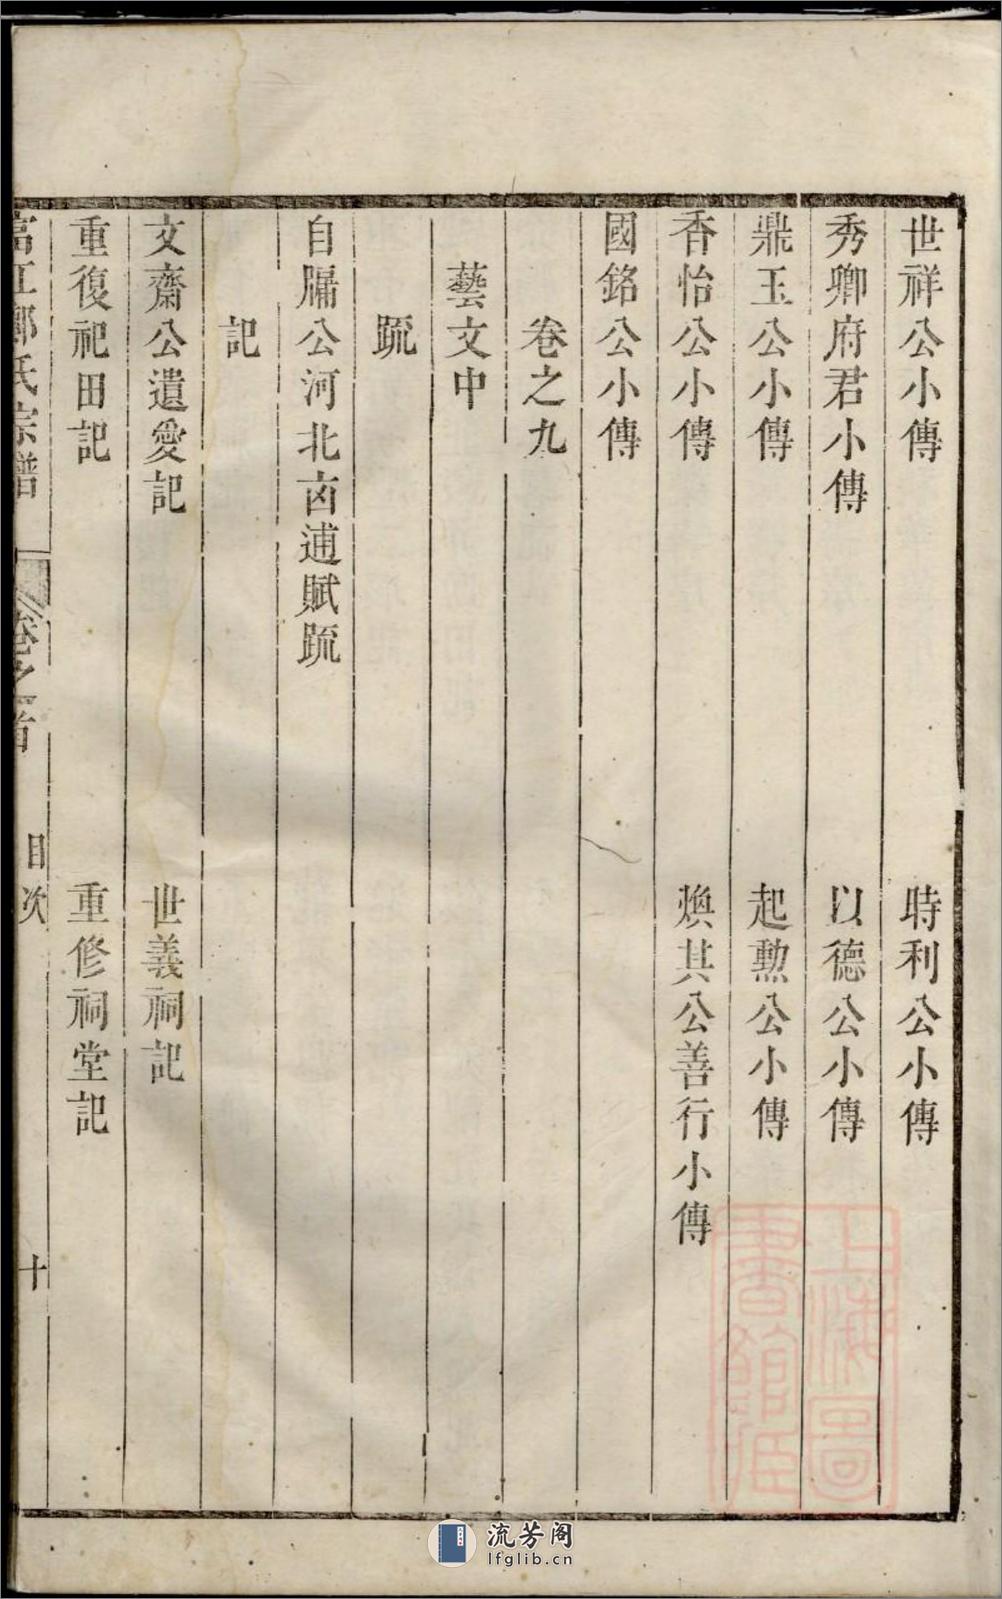 世祥公小傳　時利公小傳
秀卿府君小傳　以德公小傳
鼎玉公小傳　起勲公小傳
香怡公小傳　煥其公善行小傳
國銘公小傳
卷之九
藝文中
䟽
自牖公河北卤逋賦䟽
記
文齋公遺愛記　世義祠記
重復祀田記　重修祠堂記
富江鄭氏宗譜　卷之首　目次　十
上海圖書館藏
流芳阁
lfglib.cn